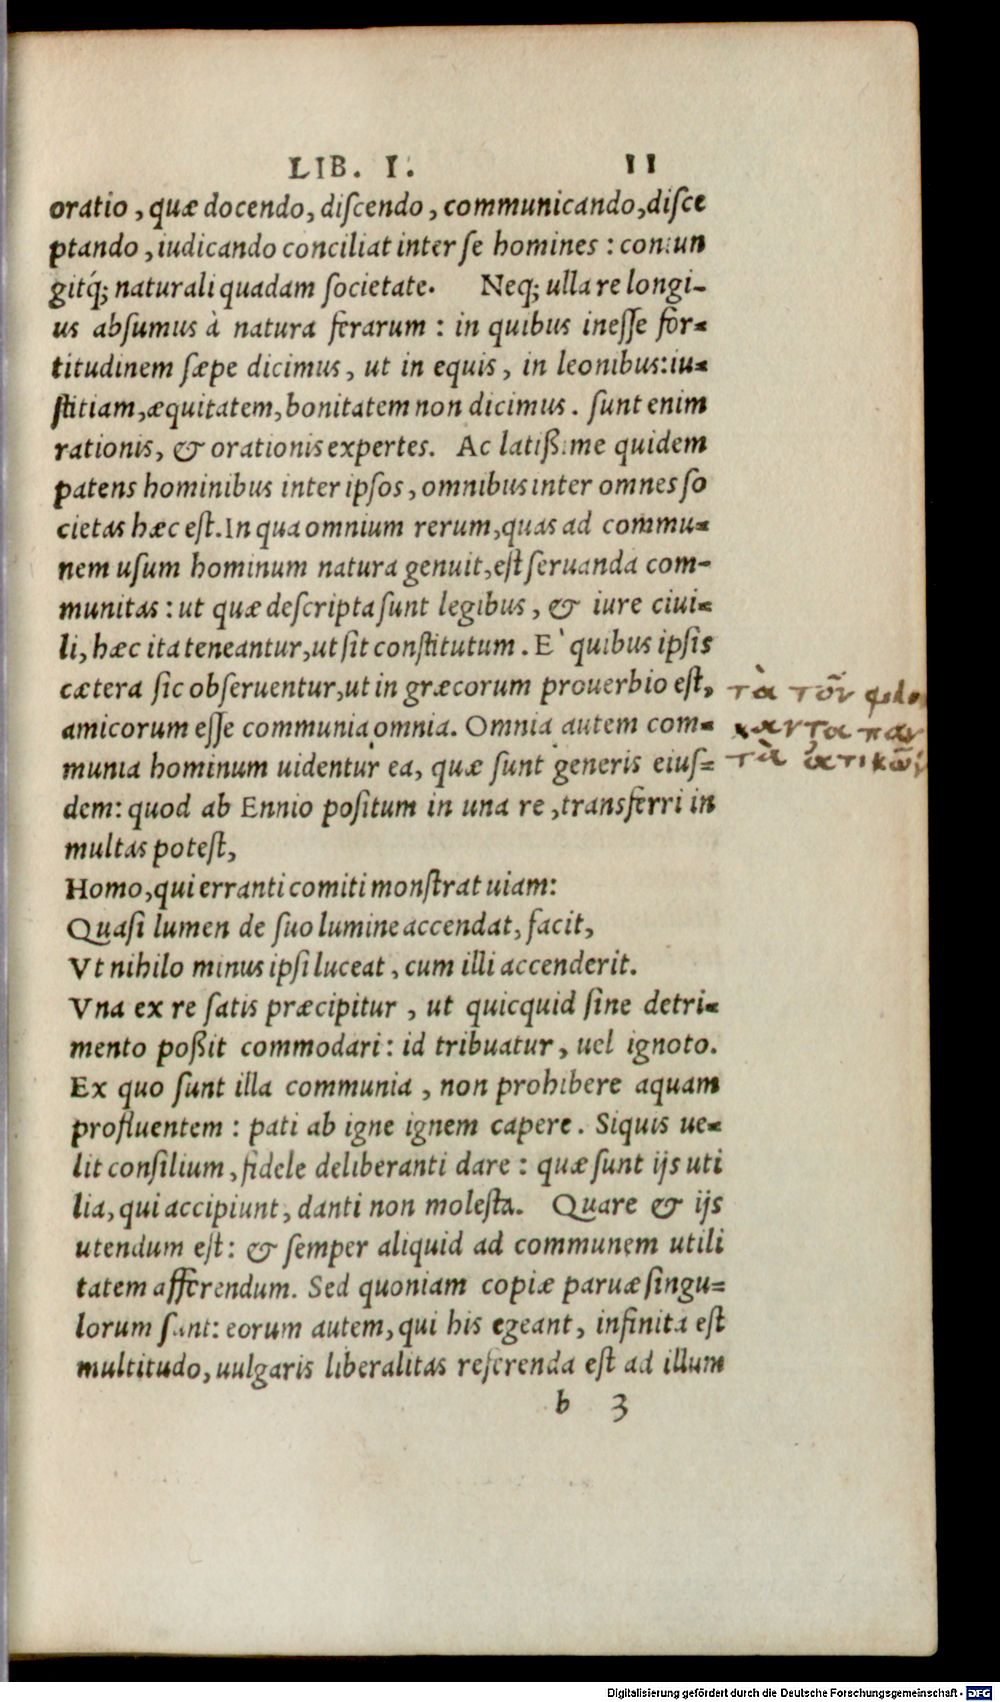 LIB. I. 11
oratio, quæ docendo, discendo, communicando, disce
ptando, iudicando conciliat inter se homines: coniun
gitq́; naturali quadam societate. Neq; ulla re longi-
us absumus à natura ferarum: in quibus inesse for-
titudinem sæpe dicimus, ut in equis, in leonibus: iu-
stitiam, æquitatem, bonitatem non dicimus. sunt enim
rationis, & orationis expertes. Ac latißime quidem
patens hominibus inter ipsos, omnibus inter omnes so
cietas hæc est. In qua omnium rerum, quas ad commu-
nem usum hominum natura genuit, est seruanda com-
munitas: ut quæ descripta sunt legibus, & iure ciui-
li, hæc ita teneantur, ut sit constitutum. E` quibus ipsis
cætera sic obseruentur, ut in græcorum prouerbio est,
amicorum esse communia omnia. Omnia autem com-
munia hominum uidentur ea, quæ sunt generis eius-
dem: quod ab Ennio positum in una re, transferri in
multas potest,
Homo, qui erranti comiti monstrat uiam:
Quasi lumen de suo lumine accendat, facit,
Vt nihilo minus ipsi luceat, cum illi accenderit.
Vna ex re satis præcipitur, ut quicquid sine detri-
mento poßit commodari: id tribuatur, uel ignoto.
Ex quo sunt illa communia, non prohibere aquam
profluentem: pati ab igne ignem capere. Siquis ue-
lit consilium, fidele deliberanti dare: quæ sunt ijs uti
lia, qui accipiunt, danti non molesta. Quare & ijs
utendum est: & semper aliquid ad communem utili
tatem afferendum. Sed quoniam copiæ paruæ singu-
lorum sunt: eorum autem, qui his egeant, infinita est
multitudo, uulgaris liberalitas referenda est ad illum
b 3
τὰ τῶν
τὰ
Digitalisierung gefördert durch die Deutsche Forschungsgemeinschaft - DFG